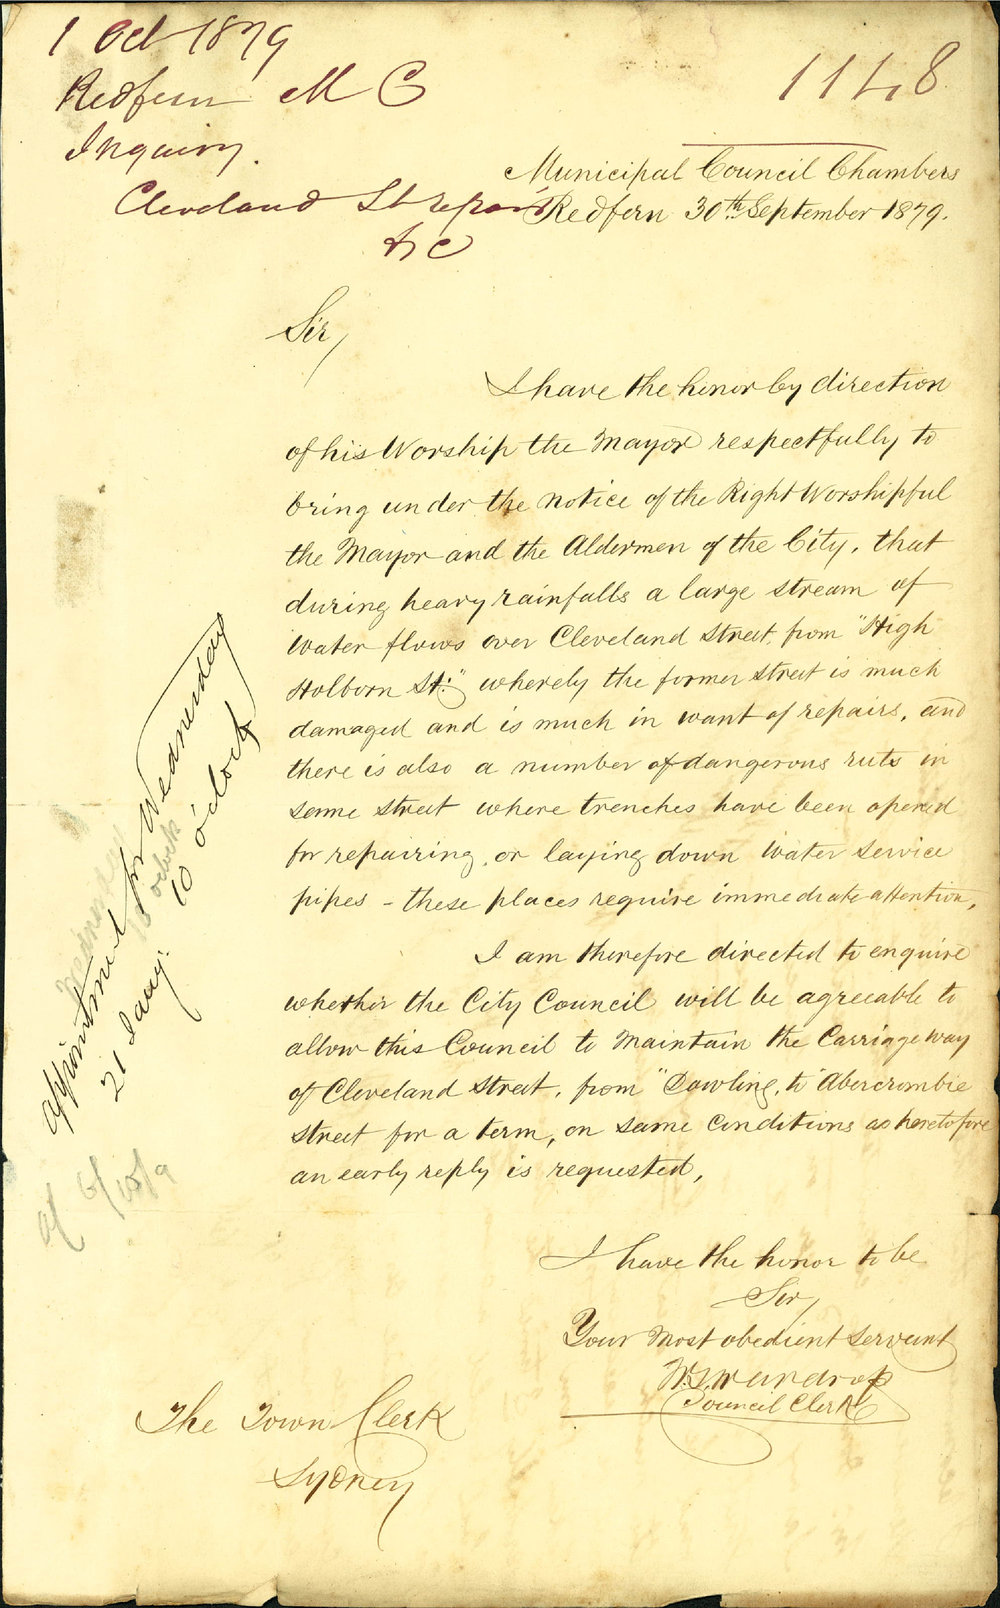 1 Oct 1879
Redfern M C
Inquiry.
Cleveland St repairs
&c
1148
Municipal Council Chambers
Redfern 30th September 1879.
Sir,
I have the honor by direction
of his Worship the Mayor respectfully to
bring under the notice of the Right Worshipful
the Mayor and the Aldermen of the City, that
during heavy rainfalls a large stream of
Water flows over Cleveland Street, from "High
Holborn St:" whereby the former street is much
damaged and is much in want of repairs, and
there is also a number of dangerous ruts in
same street where trenches have been opened
for repairing, or laying down Water Service
pipes - these places require immediate attention,
I am therefore directed to enquire
whether the City Council will be agreeable to
allow this Council to Maintain the Carriage way
of Cleveland Street, from "Dowling, to Abercrombie
Street for a term, on same Conditions as heretofore
an early reply is requested,
I have the honor to be
Sir,
Your Most obedient Servant
Wardrop
Council Clerk
The Town Clerk
Sydney
appointment for Wednesday
21 Jany. 10 o'clock
Wednesday
10 oclock
6/10/9